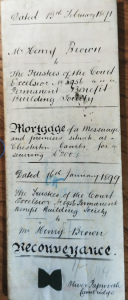 Dated 13th February 1871
Mr Henry Brown
to
The Trustees of the Court
Excelsior No
Permanent Benefit
Building Society
Mortgage of a Messuage
and premises situate at
Chesterton Cambs for
securing £200
Dated 16th January 1879
The Trustees of the Court
Excelsior Permanent
Benefit Building Society
to
Mr Henry Brown
Reconveyance.
Papworth
Cambridge